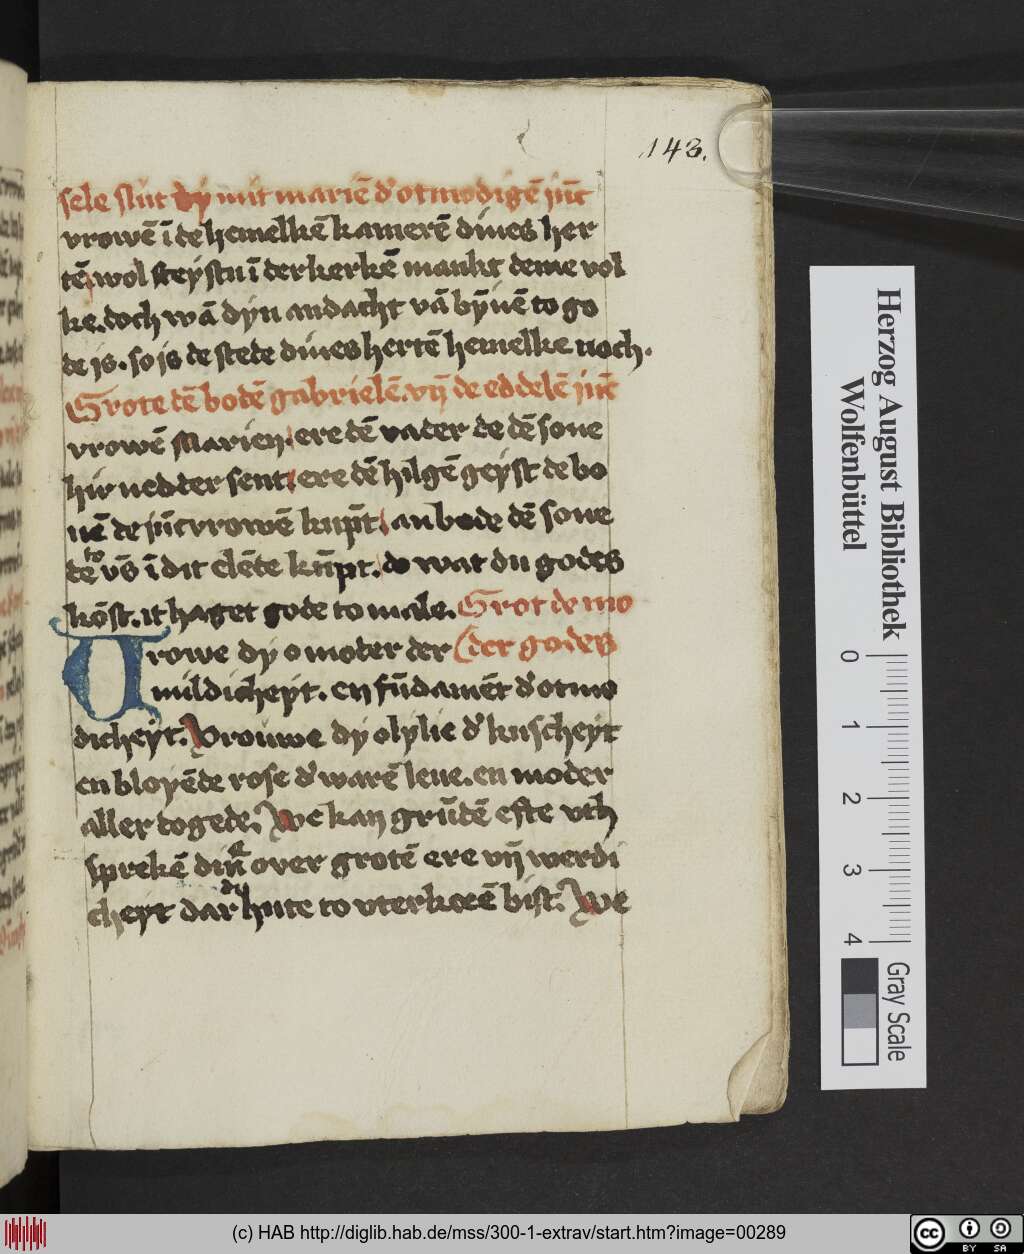 143.
sele slut dy mit mariē d' otmodigē jūc
vrowē ī de hemelkē kamerē dines her
tē wol steystu ī der kerkē mankt deme vol
ke. doch wā dyn andacht vā bȳnē to go
de is. so is de stede dines hertē hemelke noch.
Grote dē bodē gabrielē. vn̄ de eddelē jūc
vrowē Marien. ere dē vader de dē sone
hir nedder sent ere dē hilgē geyst de bo
uē de jūcvrowē kūpt. anbede dē sone
de to vs̄ ī dit elēde kūpt. do wat du godes
kōst. it haget gode to male. Grot de mo
Vrowe dy o moter der (der godes
mildicheyt. en fūdamēt d' otmo
dicheyt. Vrouwe dy o lylie d' kuscheyt
en bloyēde rose d' warē leue. en moder
aller togede. We kan grūdē efte vth
sprekē dine over grotē ere vn̄ werdi
cheyt dar du hute to vterkorē bist. We
Herzog August Bibliothek
Wolfenbüttel
0 1 2 3 4
Gray Scale
(c) HAB http://diglib.hab.de/mss/300-1-extrav/start.htm?image=00289
cc BY SA